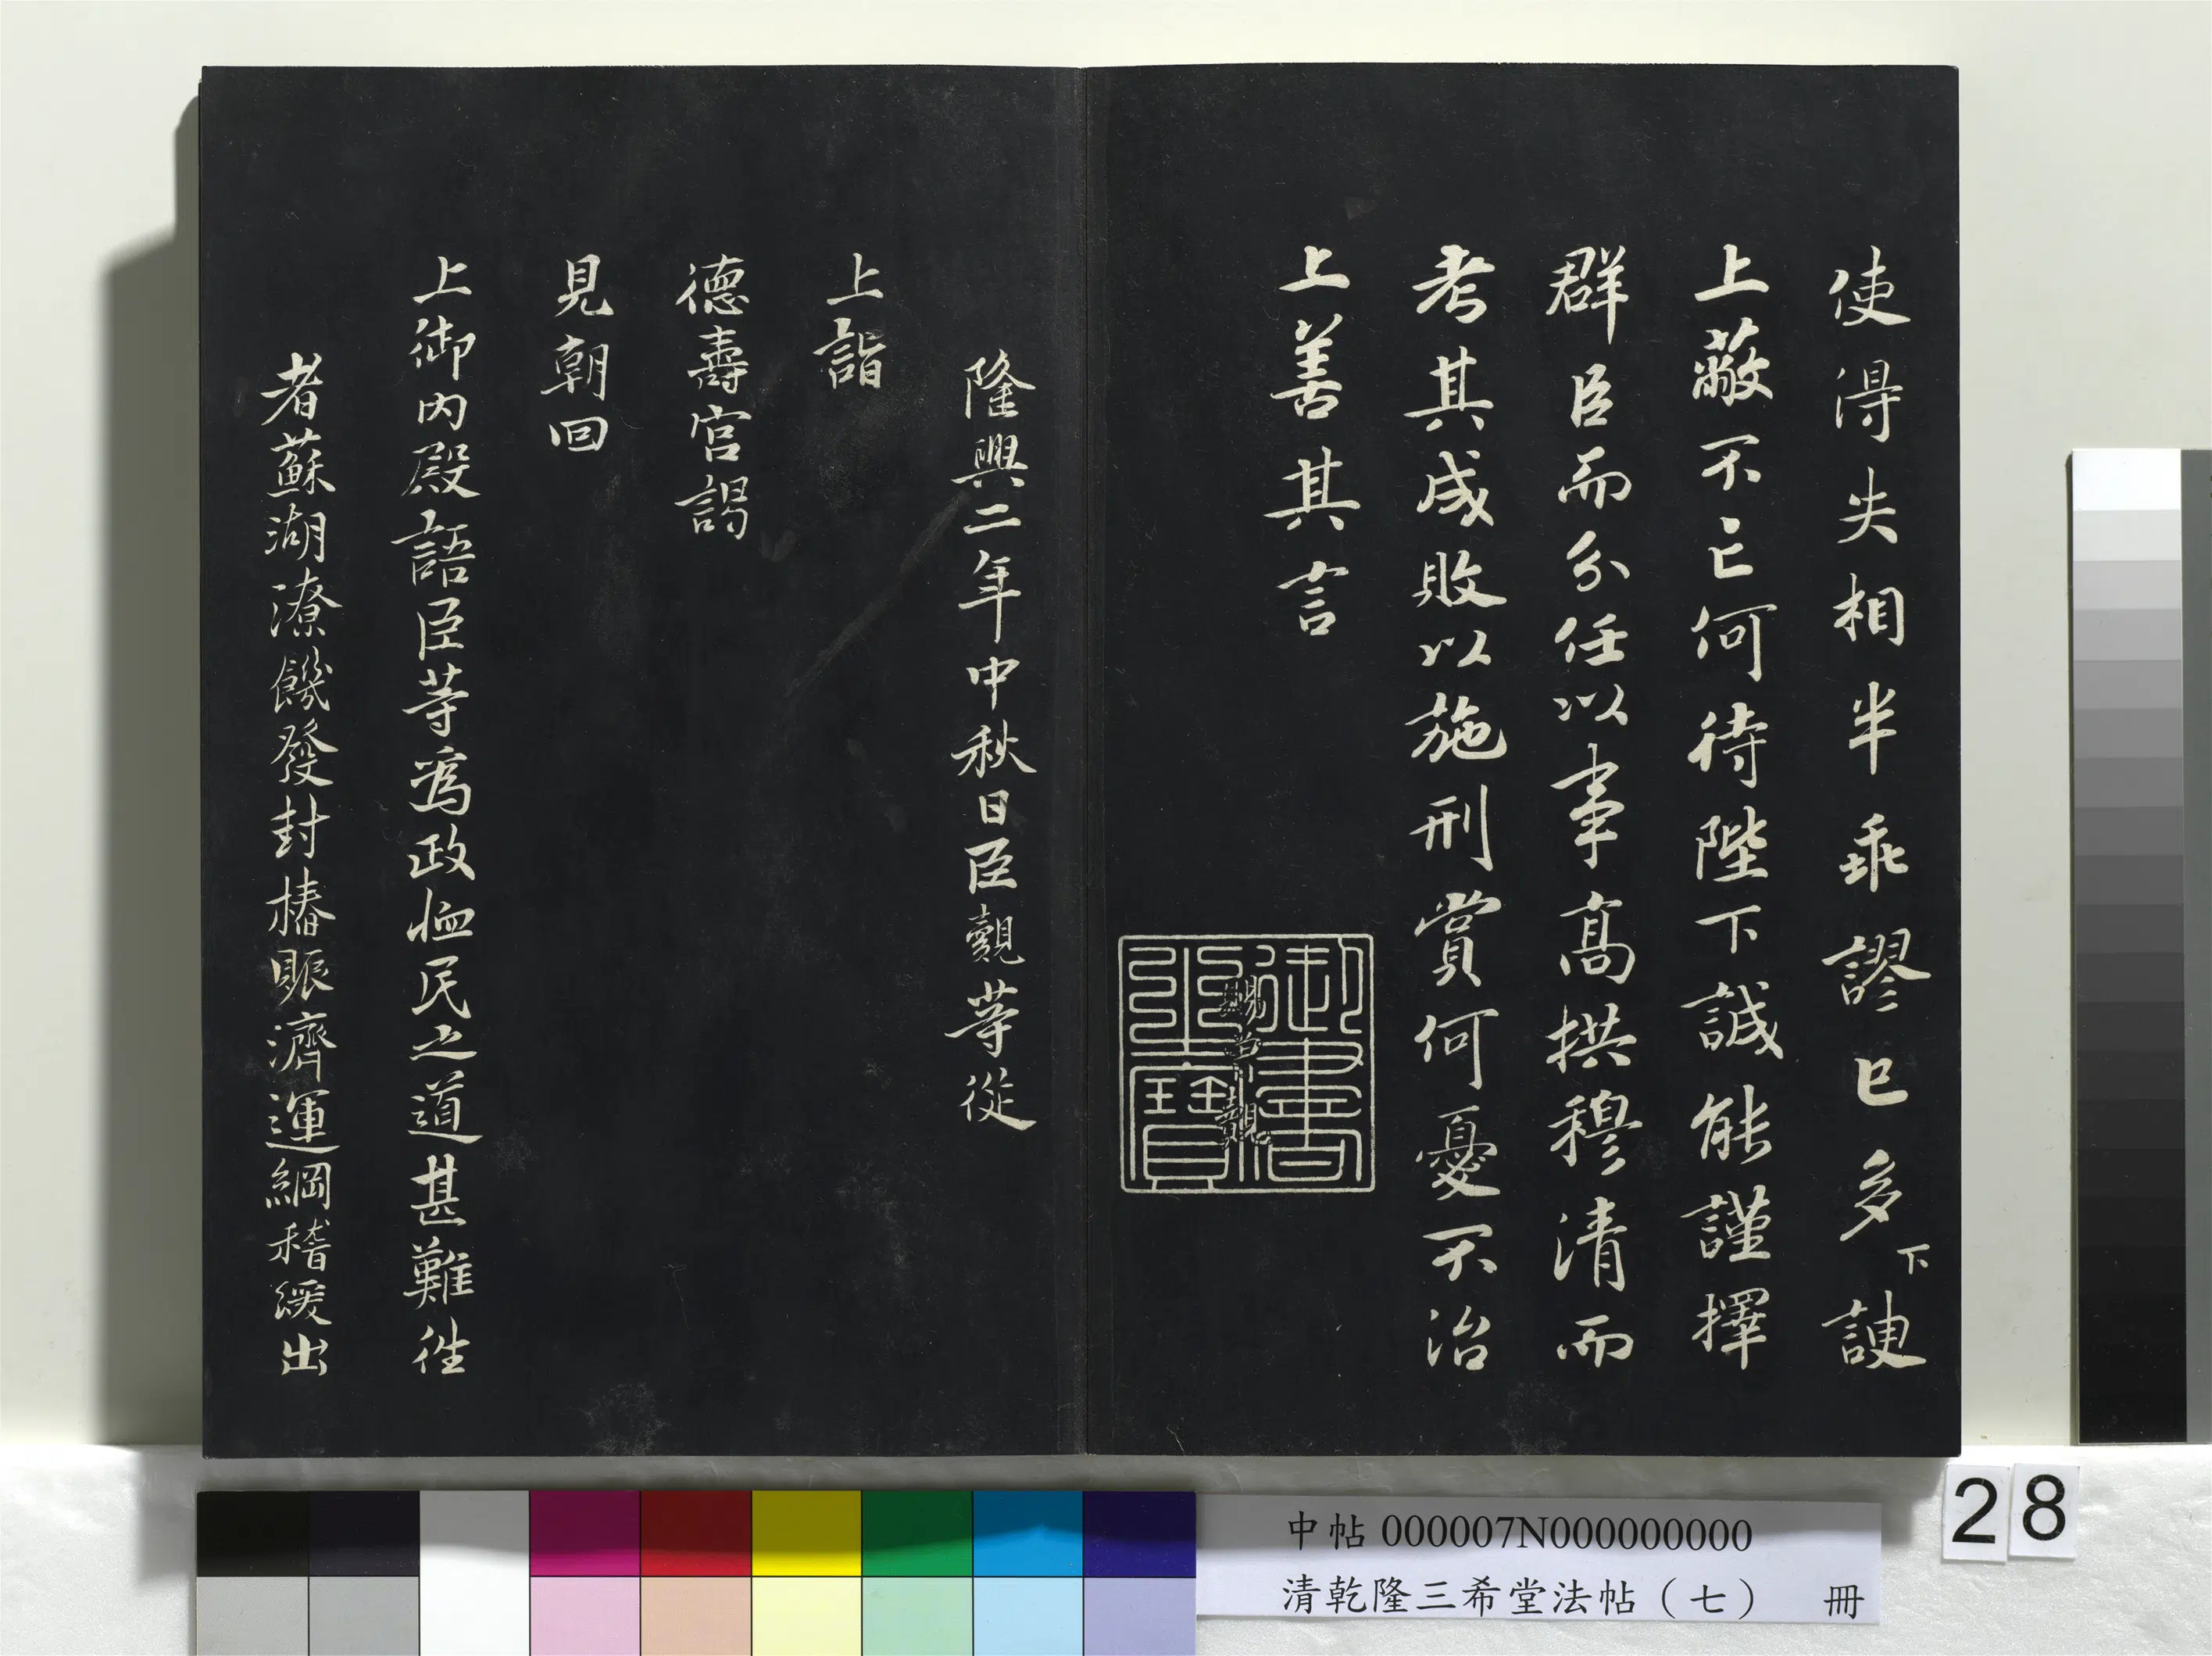 使得失相半乖謬已多下諛
上蔽不亡何待陛下誠能謹擇
群臣而分任以事高拱穆清而
考其成敗以施刑賞何憂不治
上善其言
御書之寶
賜曾覿
隆興二年中秋日臣覿等從
上詣
德壽宮謁
見朝回
上御內殿語臣等為政恤民之道甚難往
者蘇湖潦饑發封樁賑濟運綱稽緩出
中帖 000007N000000000
清乾隆三希堂法帖（七） 冊
28